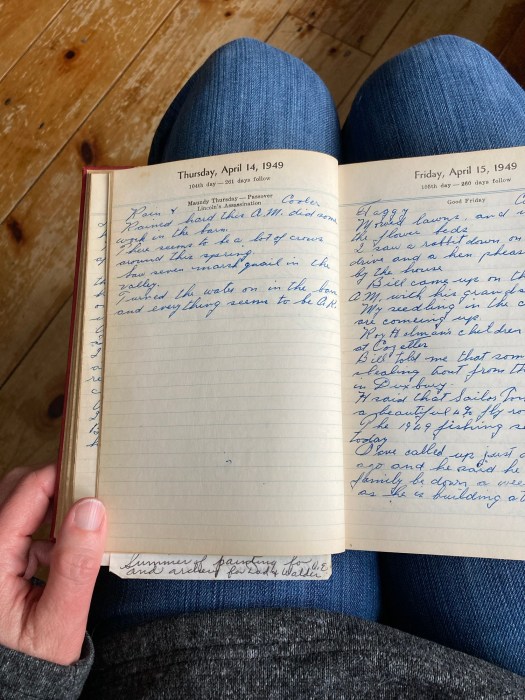 Thursday, April 14, 1949
104th day — 261 days follow
Maundy Thursday — Passover
Lincoln's Assassination
Rain & Cooler
Rained hard this A.M. did some
work in the barn.
There seems to be a lot of crows
around this spring.
Saw seven marsh quail in the
valley.
Turned the water on in the barn
and everything seems to be O.K.
Friday, April 15, 1949
105th day — 260 days follow
Good Friday
Foggy
Mowed lawns, and
the flower beds
I saw a rabbit down on
drive and a hen pheas
by the house
Bill came up on th
A.M. with his grands
My seedling in the c
are comeing up.
Roy Helman's children
at
Bill told me that som
stealing bout from th
in Duxbury.
H said that Sailor Tom
a beautiful 4 oz fly ro
The 1949 fishing se
today
Dave called up just a
ago and he said he
family be down a wee
as she is building a
Summer of painting for
and archery for Dad & Walder